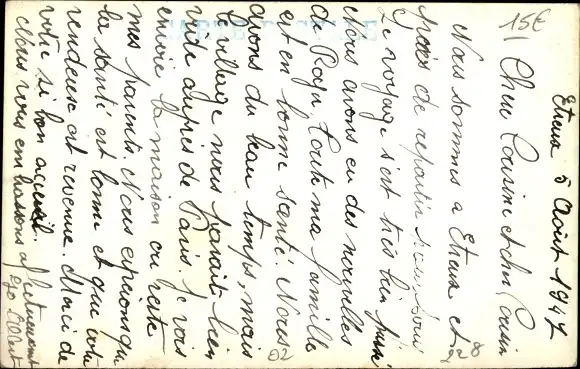 15€
Etreux 5 Août 1947
Chère Cousine et cher Cousin
Nous sommes a Etreux et
prêts de repartir
Le voyage s'est très bien passé
Nous avons eu des nouvelles
de Roger, toute ma famille
est en bonne santé. Nous
avons du beau temps, mais
l'auberge nous parait bien
vide auprès de Paris. Je vais
écrire la maison ou reste
mes parents. Nous espérons que
la santé est bonne et que votre
vendeuse est revenue. Merci de
votre si bon accueil.
Nous vous embrassons affectueusement
02